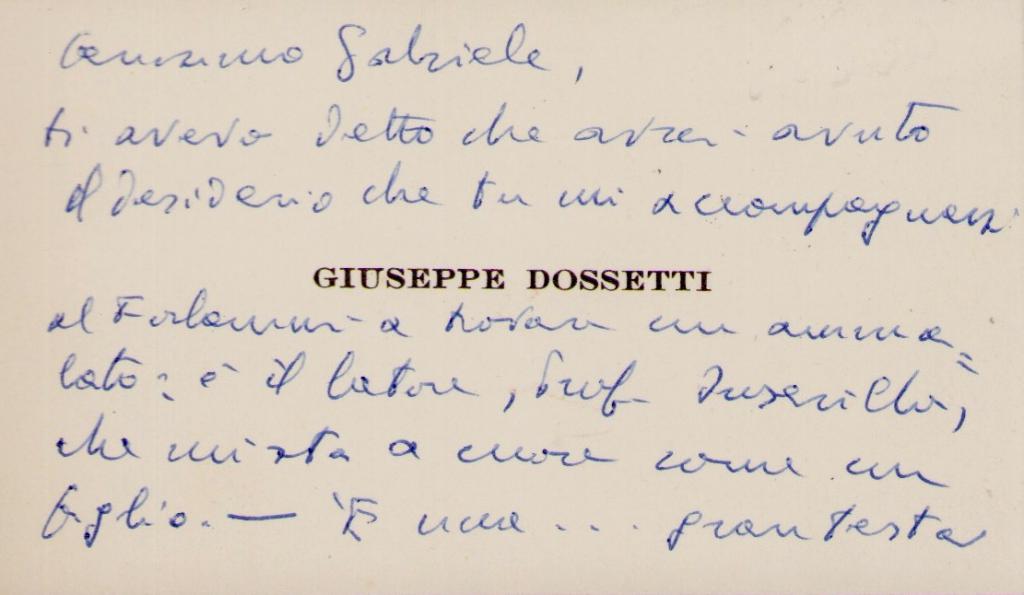 Carissimo Gabriele,
ti avevo detto che avrei avuto
il desiderio che tu mi accompagnassi
GIUSEPPE DOSSETTI
al Forlanini a trovare un amma=
lato: è il latore, Prof. Inserillo,
che mi sta a cuore come un
figlio. — È una ... gran testa